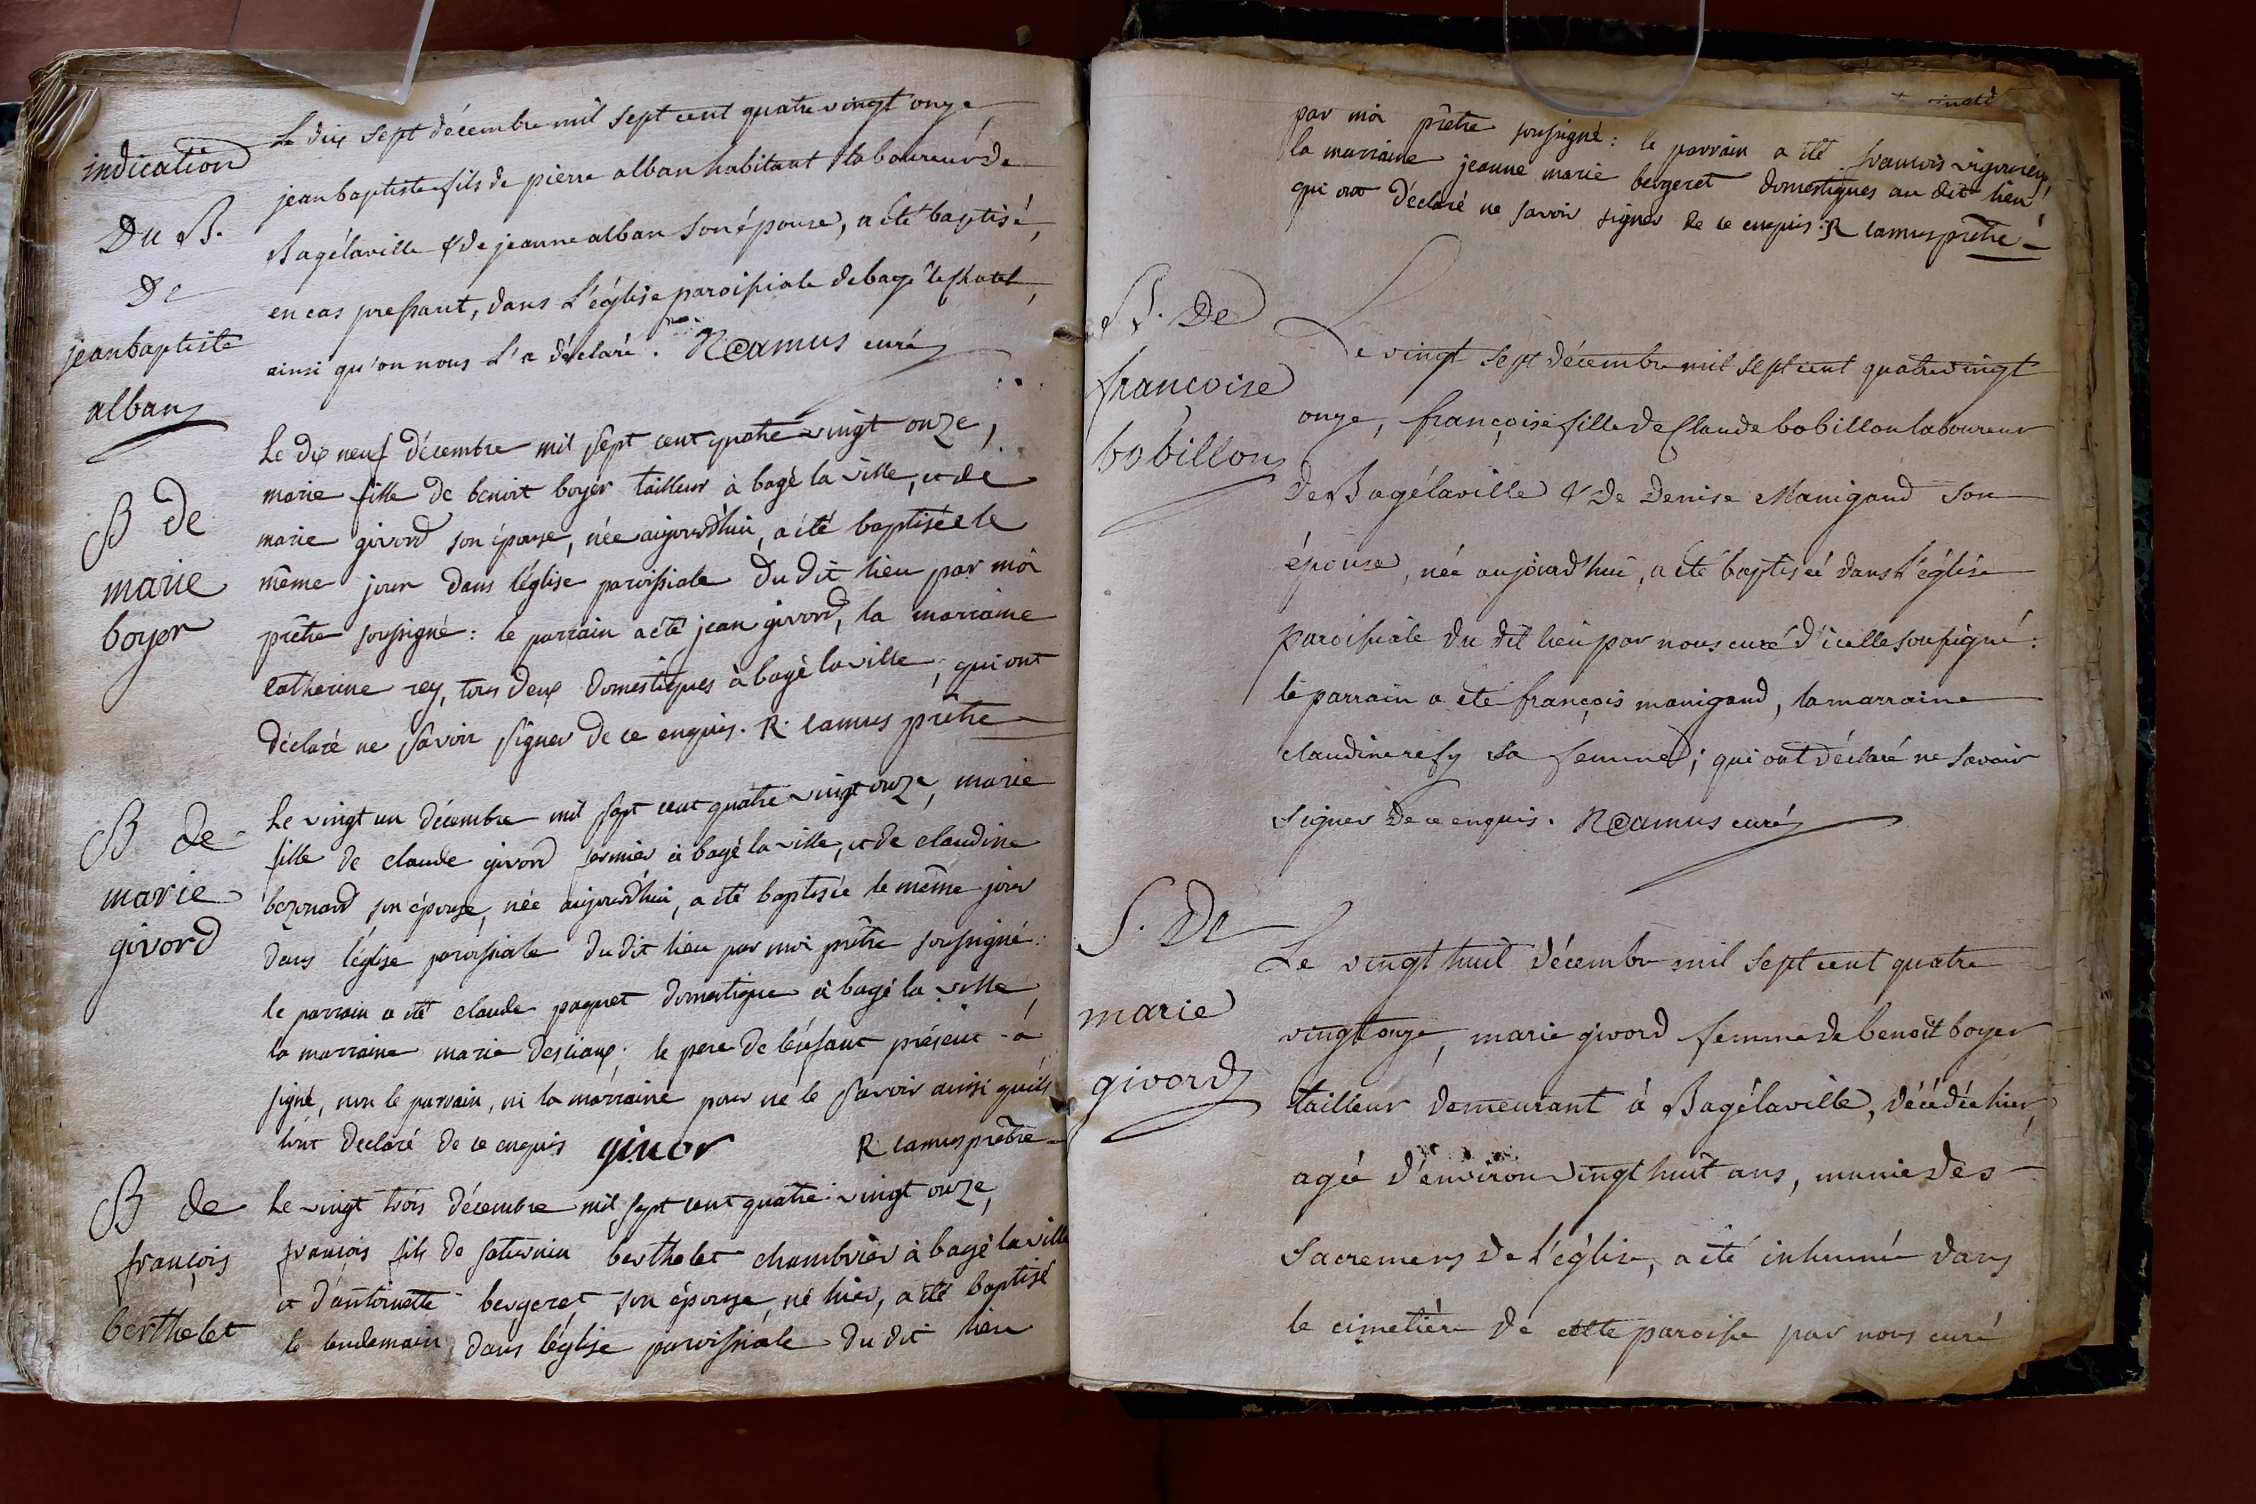 indication
Du B.
De
jean baptiste
alban
Le dix sept décembre mil sept cent quatre vingt onze,
jean baptiste fils de pierre alban habitant laboureur de
Bagélaville & de jeanne alban son épouse, a été baptisé,
en cas pressant, dans l'église paroissiale de bagé le chatel,
ainsi qu'on nous l'a déclaré. N Camus curé
B de
marie
boyer
Le dix neuf décembre mil sept cent quatre vingt onze,
marie fille de benoit boyer tailleur à bagé la ville, et de
marie givord son épouse, née aujourd'hui, a été baptisée le
même jour dans l'église paroissiale du dit lieu par moi
prêtre soussigné: le parrain a été jean givord, la marraine
catherine rey, tous deux domestiques à bagé la ville, qui ont
déclaré ne savoir signer de ce enquis. R. camus prêtre
B de
marie
givord
Le vingt un décembre mil sept cent quatre vingt onze, marie
fille de claude givord fermier à bagé la ville, et de claudine
bezonard son épouse, née aujourd'hui, a été baptisée le même jour
dans l'église paroissiale du dit lieu par moi prêtre soussigné:
le parrain a été claude paquet domestique à bagé la ville,
la marraine marie desciaux; le pere de l'enfant présent a
signé, non le parrain, ni la marraine pour ne le savoir ainsi qu'ils
l'ont déclaré de ce enquis givor R camus prêtre
B de
françois
berthelet
Le vingt trois décembre mil sept cent quatre vingt onze,
françois fils de saturnin berthelet chambrier à bagé la ville
et d'antoinette bergeret son épouse, né hier, a été baptisé
le lendemain dans l'église paroissiale du dit lieu
par moi prêtre soussigné: le parrain a été francois vigourieu,
la marraine jeanne marie bergeret domestiques au dit lieu,
qui ont déclaré ne savoir signer de ce enquis. R camus prêtre
B. De
francoise
bobillon
Le vingt sept décembre mil sept cent quatre vingt
onze, françoise fille de Claude bobillon laboureur
de Bagélaville & de Denise Manigand son
épouse, née aujourd'hui, a été baptisée dans l'église
paroissiale du dit lieu par nous curé d'icelle soussigné:
le parrain a été françois manigand, la marraine
claudine resy sa femme; qui ont déclaré ne savoir
signer de ce enquis. N Camus curé
S. De
marie
givord
Le vingt huit décembre mil sept cent quatre
vingt onze, marie givord femme de benoît boyer
tailleur demeurant à Bagélaville, décédée hier,
agée d'environ vingt huit ans, munie des
sacremens de l'église, a été inhumée dans
le cimetière de cette paroisse par nous curé